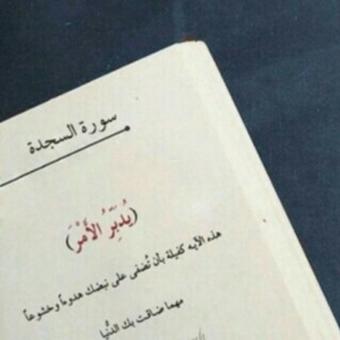 سورة السجدة
(يُدَبِّرُ الأَمْرَ)
هذه الآيه كفيلة بأن تُضفى على نبضك هدوءاً وخشوعاً
مهما ضاقت بك الدُنيا